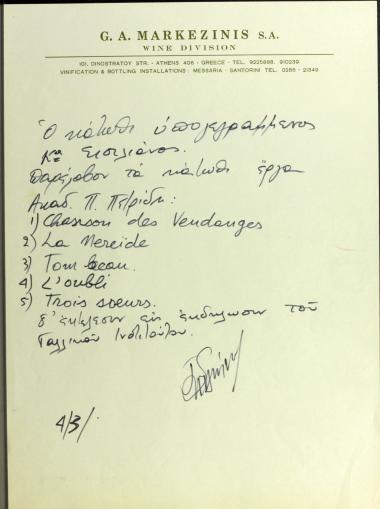 G. A. MARKEZINIS S.A.
WINE DIVISION
101, DINOSTRATOY STR. - ATHENS 406 - GREECE - TEL. 9225888, 910239
VINIFICATION & BOTTLING INSTALLATIONS: MESSARIA - SANTORINI TEL. 0286 - 21349
Ὁ κάτωθι ὑπογεγραμμένος
Παρέλαβον τὰ κάτωθι ἔργα
Ἀκαδ. Π. Πετρίδη:
1) Chanson des Vendanges
2) La Nereide
3) Tombeau.
4) L'oubli
5) Trois soeurs.
δι' ἐκτέλεσιν εἰς ἐκδήλωσιν τοῦ
Γαλλικοῦ Ινστιτούτου.
4/3/.